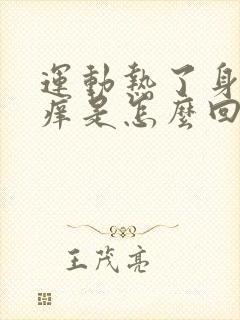 運動熱了身
痒是怎麼回
王茂亮